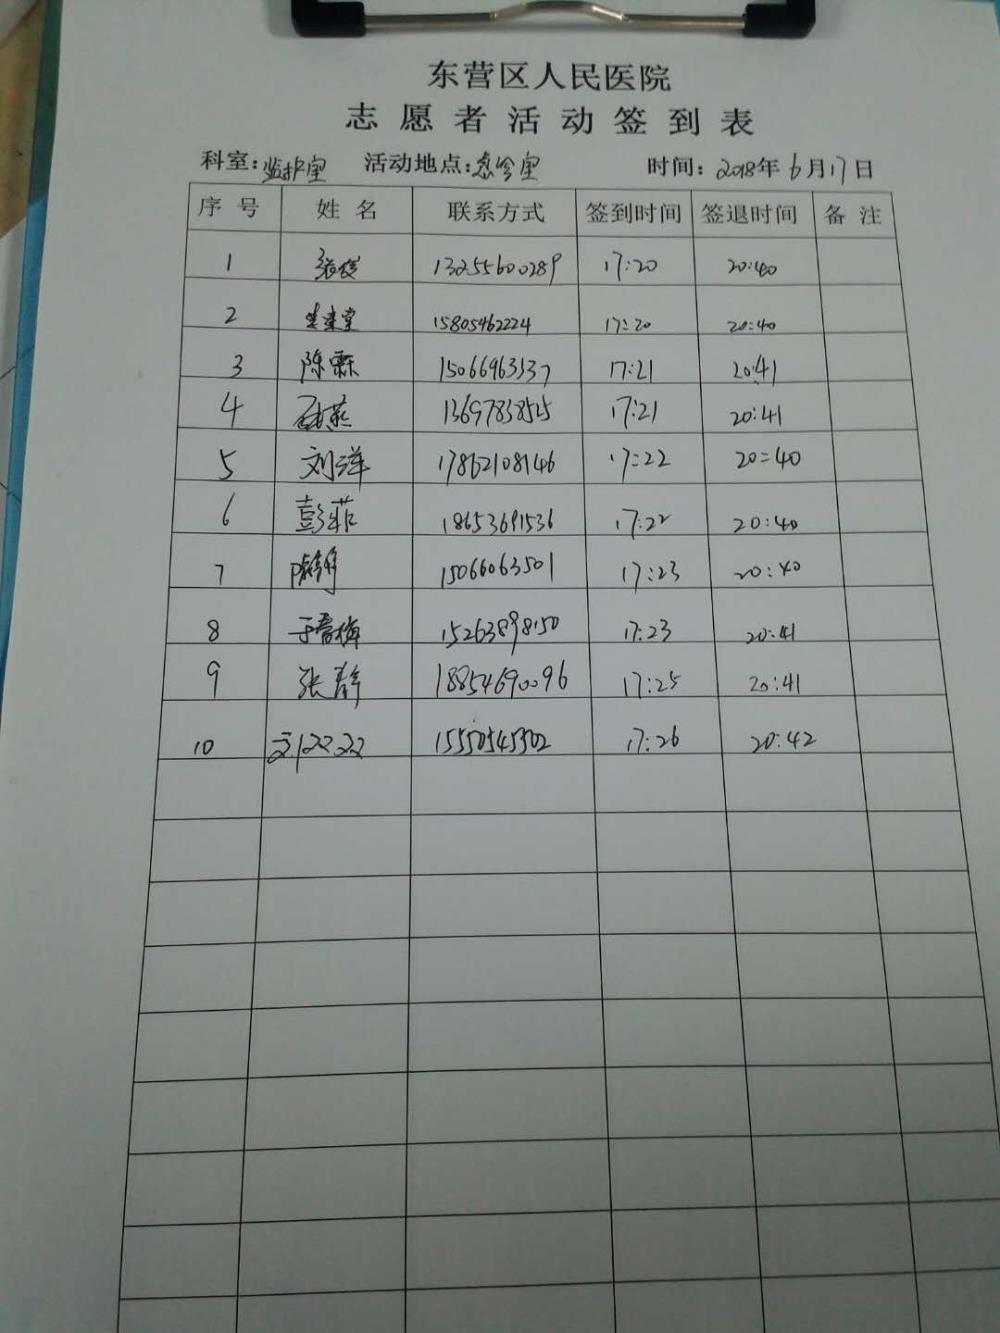 东营区人民医院
志愿者活动签到表
科室:监护室 活动地点: 时间: 2018年6月17日
序号 姓名 联系方式 签到时间 签退时间 备注
1 张俊 13255600289 17:20 20:40
2 15805462224 17:20 20:40
3 陈霖 15066963137 17:21 20:41
4 13697838525 17:21 20:41
5 刘洋 17862108146 17:22 20:40
6 彭菲 18653691536 17:22 20:40
7 15066063501 17:23 20:40
8 于春梅 15263898150 17:23 20:41
9 张静 18854690096 17:25 20:41
10 15550545302 17:26 20:42